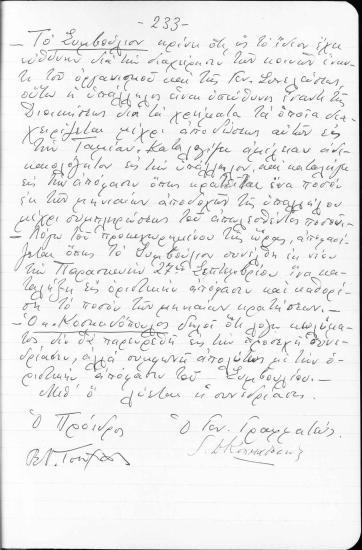 -233-
- Τὸ Συμβούλιον κρίνει ὅτι ὡς τὸ ἴδιον ἔχει
εὐθύνην διὰ τὴν διαχείρησιν τῶν κοινῶν ἔναν-
τι τοῦ ὀργανισμοῦ καὶ τῆς Γεν. Συνελεύσεως,
οὕτω ἡ ὑπάλληλος εἶναι ὑπεύθυνη ἔναντι τῆς
Διοικήσεως διὰ τὰ χρήματα τὰ ὁποῖα δια-
χειρίζεται μέχρι ἀποδόσεως αὐτῶν εἰς
τὴν Ταμίαν. Καταλογίζει ἀμέλειαν ἀδι-
καιολόγητον εἰς τὴν ὑπάλληλον, καὶ καταλήγει
εἰς τὴν ἀπόφασιν ὅπως κρατεῖται ἕνα ποσὸν
ἐκ τῶν μηνιαίων ἀποδοχῶν τῆς ὑπαλλήλου
μέχρι συμπληρώσεως τοῦ ἀπωλεσθέντος ποσοῦ.-
- Λόγῳ τοῦ προκεχωρημένου τῆς ὥρας, ἀποφασί-
ζεται ὅπως τὸ Συμβούλιον συνέλθῃ ἐκ νέου
τὴν Παρασκευὴν 27ην Σεπτεμβρίου ἵνα κα-
ταλήξῃ εἰς ὁριστικὴν ἀπόφασιν καὶ καθορί-
σῃ τὸ ποσὸν τῶν μηνιαίων κρατήσεων.-
- Ὁ κ. Κοσκινόπουλος δηλοῖ ὅτι λόγῳ κωλύμα-
τος δὲν θὰ παρευρεθῇ εἰς τὴν προσεχῆ συνε-
δρίασιν, ἀλλὰ συμφωνεῖ ἀπολύτως μὲ τὴν ὁ-
ριστικὴν ἀπόφασιν τοῦ Συμβουλίου.-
Μεθ' ὃ λύεται ἡ συνεδρίασις.
Ὁ Πρόεδρος Ὁ Γεν. Γραμματεύς